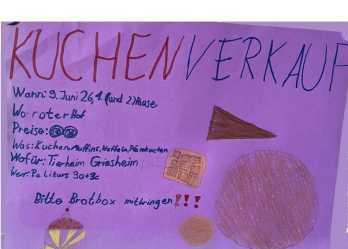 KUCHENVERKAUF
Wann: 9. Juni 26, 1. (und 2.) Pause
Wo: roter Hof
Preise:
Was: Kuchen, Muffins, Waffeln, Pfannkuchen
Wofür: Tierheim Griesheim
Wer: PoLikurs
Bitte Brotbox mitbringen!!!